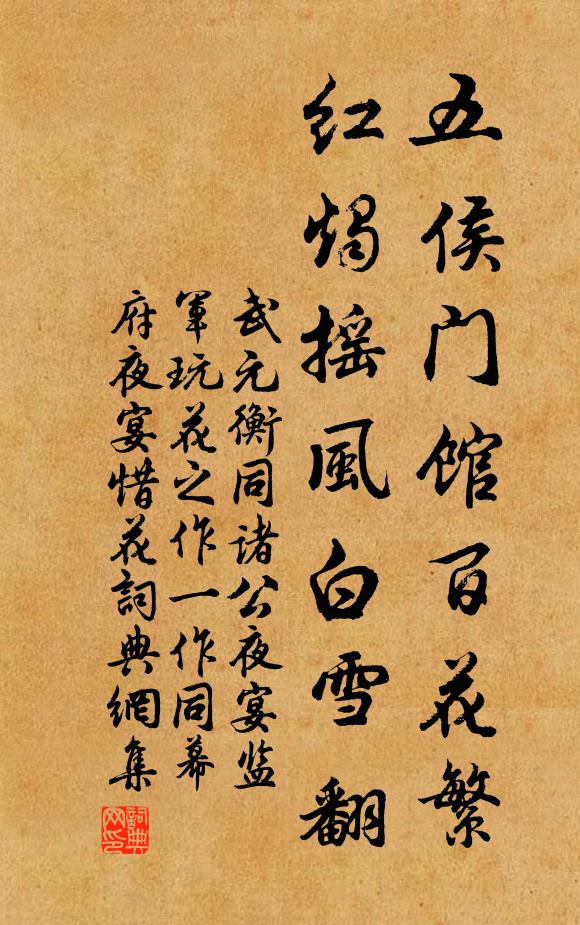 五侯门馆百花繁
红烛摇風白雪翻
武元衡同诸公夜宴监
军玩花之作一作同幕
府夜宴惜花詞典網集
詞典网印